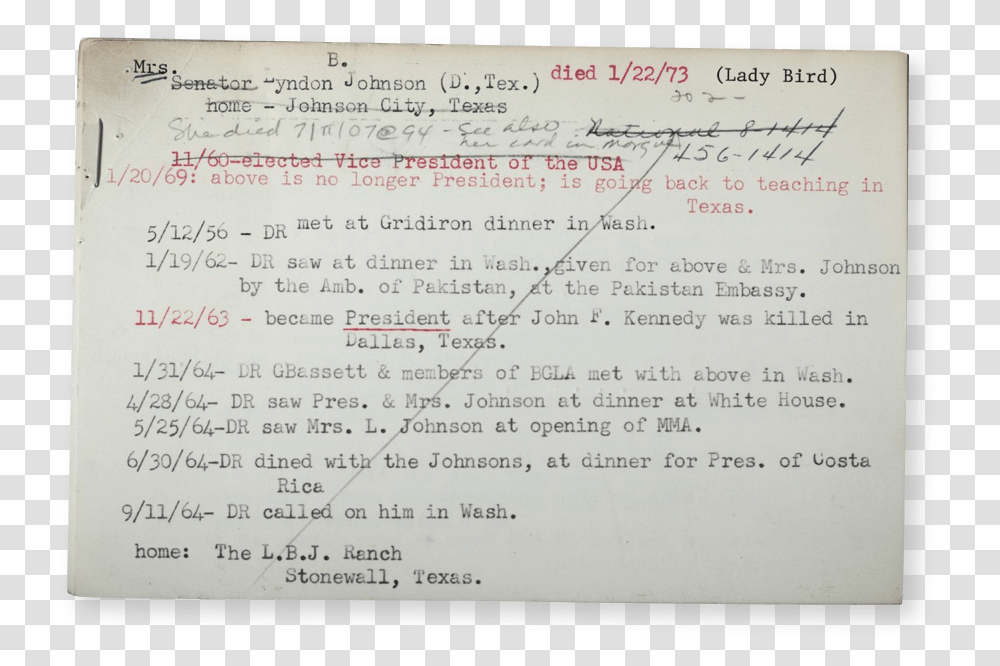 B.
Mrs. Senator Lyndon Johnson (D.,Tex.) died 1/22/73 (Lady Bird)
home - Johnson City, Texas 202-
She died 7/11/07@94 - see also National 8-1414
her card in morgue 456-1414
11/60-elected Vice President of the USA
1/20/69: above is no longer President; is going back to teaching in
Texas.
5/12/56 - DR met at Gridiron dinner in Wash.
1/19/62- DR saw at dinner in Wash., given for above & Mrs. Johnson
by the Amb. of Pakistan, at the Pakistan Embassy.
11/22/63 - became President after John F. Kennedy was killed in
Dallas, Texas.
1/31/64- DR GBassett & members of BGLA met with above in Wash.
4/28/64- DR saw Pres. & Mrs. Johnson at dinner at White House.
5/25/64-DR saw Mrs. L. Johnson at opening of MMA.
6/30/64-DR dined with the Johnsons, at dinner for Pres. of Costa
Rica
9/11/64- DR called on him in Wash.
home: The L.B.J. Ranch
Stonewall, Texas.